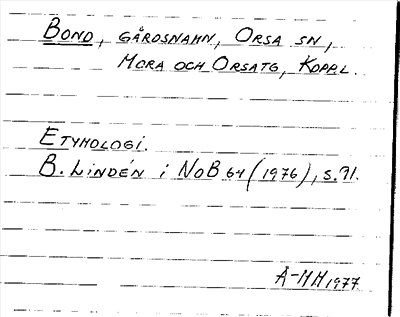 BOND, GÅRDSNAMN, ORSA SN,
MORA OCH ORSATG, KOPPL.
ETYMOLOGI.
B. LINDÉN i NoB 64 (1976), s. 91.
A-MH 1977